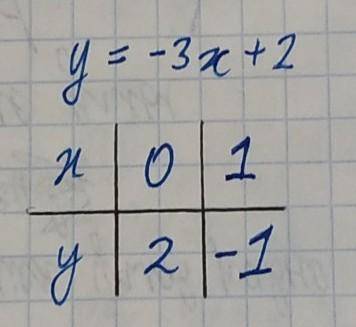 y = -3x + 2
x 0 1
y 2 -1